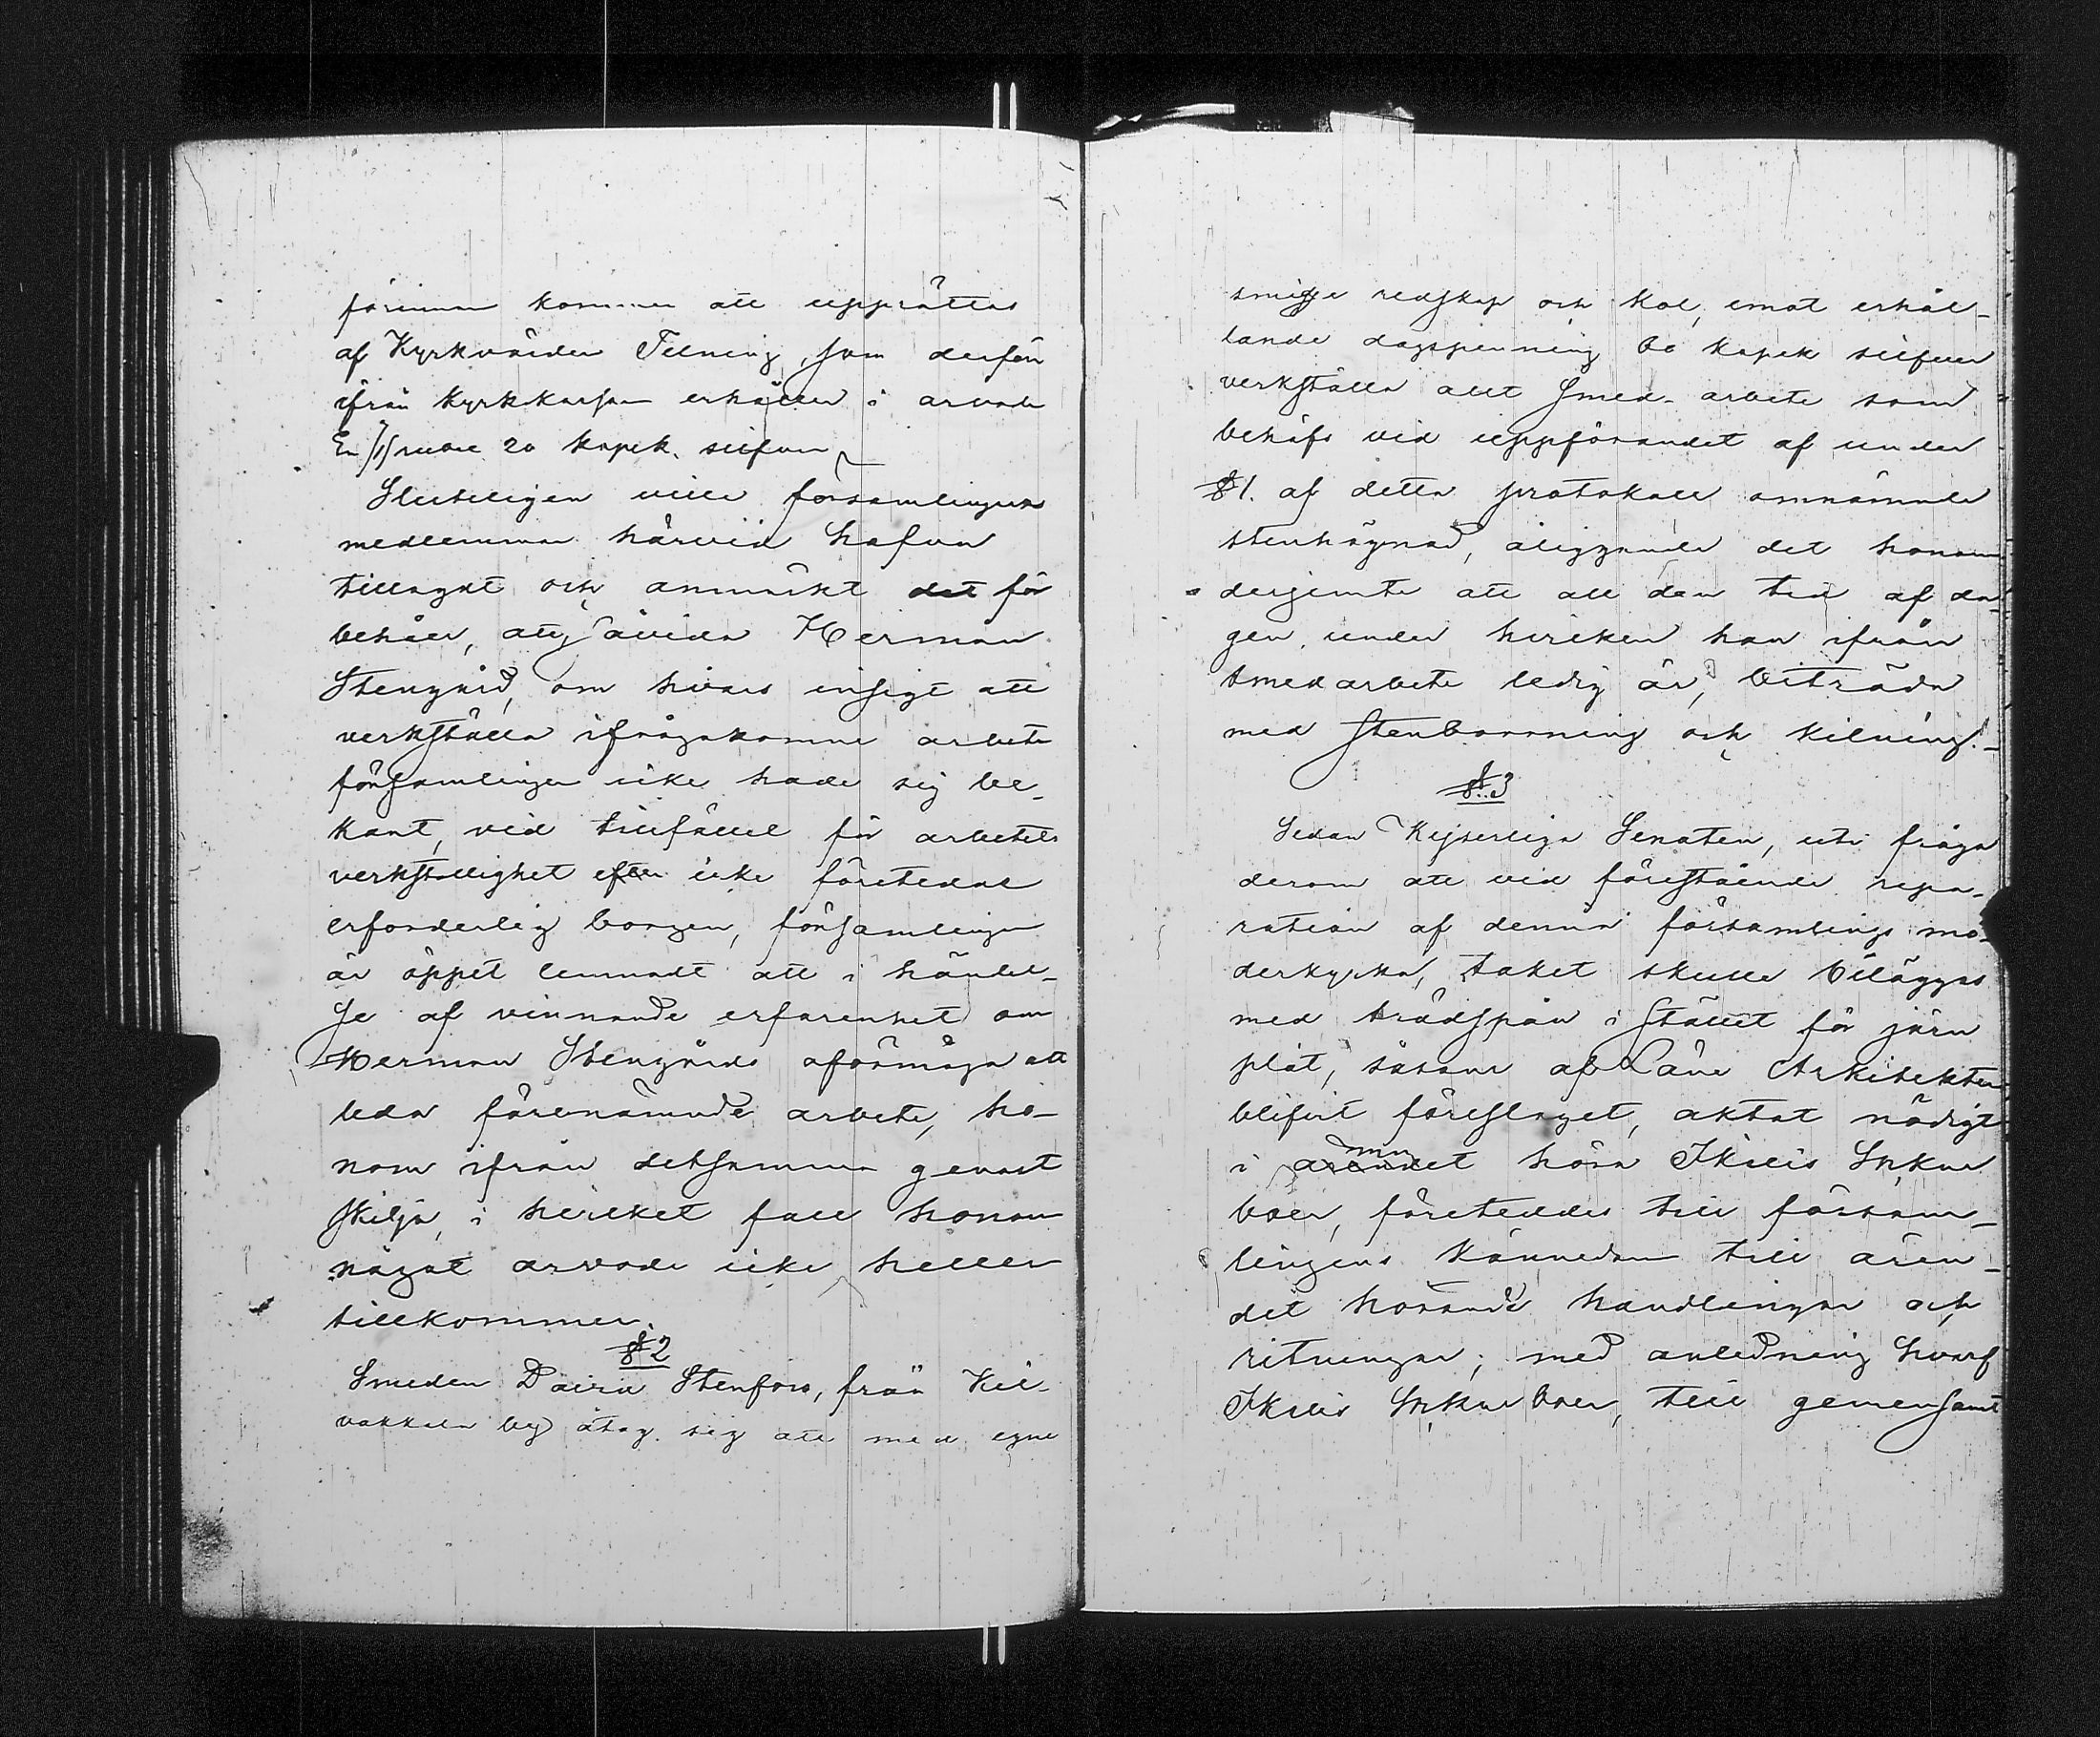 förinnan kommer att upprättas
af Kyrkvärden Telning, som derför
ifrån Kyrkkassan erhåller i arvode
En /1/ rubel 20 kopek. silfver
Slutligen ville församlingens
medlemmar härvid hafva
tillagdt och anmärkt det för
behåll, att, i
Stengård, om hvars insigt att
verkställa ifrågakomne arbete
församlingen icke hade sig be-
kant, vid tillfället för arbetets
verkställighet efter icke företedde
erforderlig borgen, församlingen
är öppet lemnadt att i händel-
se af vinnande erfarenhet om
Herman Stengårds oförmåga att
leda förenämnde arbete, ho-
nom ifrån detsamma genast
skilja, i hvilket fall honom
något arvode icke heller
tillkommer.
§2
Smeden David Stenfors, från Kil-
vakkala by åtog sig att med egne
smidje redskap och kol, emot erhål-
lande dagspenning 60 kopek silfver
verkställa allt Smed-arbete som
behöfs vid uppförandet af under
§1. af detta protokoll omnämnde
stenhägnad, åliggande det honom
desjemte att all den tid af da-
gen, under hvilken han ifrån
smedarbete ledig är, biträda
med Stenborrning och kilning.-
§3
Sedan Kejserliga Senaten, uti fråga
derom att vid förestående repa-
ration af denna församlings mo-
derkyrka, taket skulle beläggas
med trädspån i stället för järn
plåt, såsom af Läne Arkitekten
blifvit föreslaget, aktat nödigt
i ärendet höra Ikalis Sockne
boer, företeddes till försam-
lingens kännedom till ären-
det hörande handlingar och
ritningar; med anledning hvaraf
Ikalis Sockne boer, till gemensamt